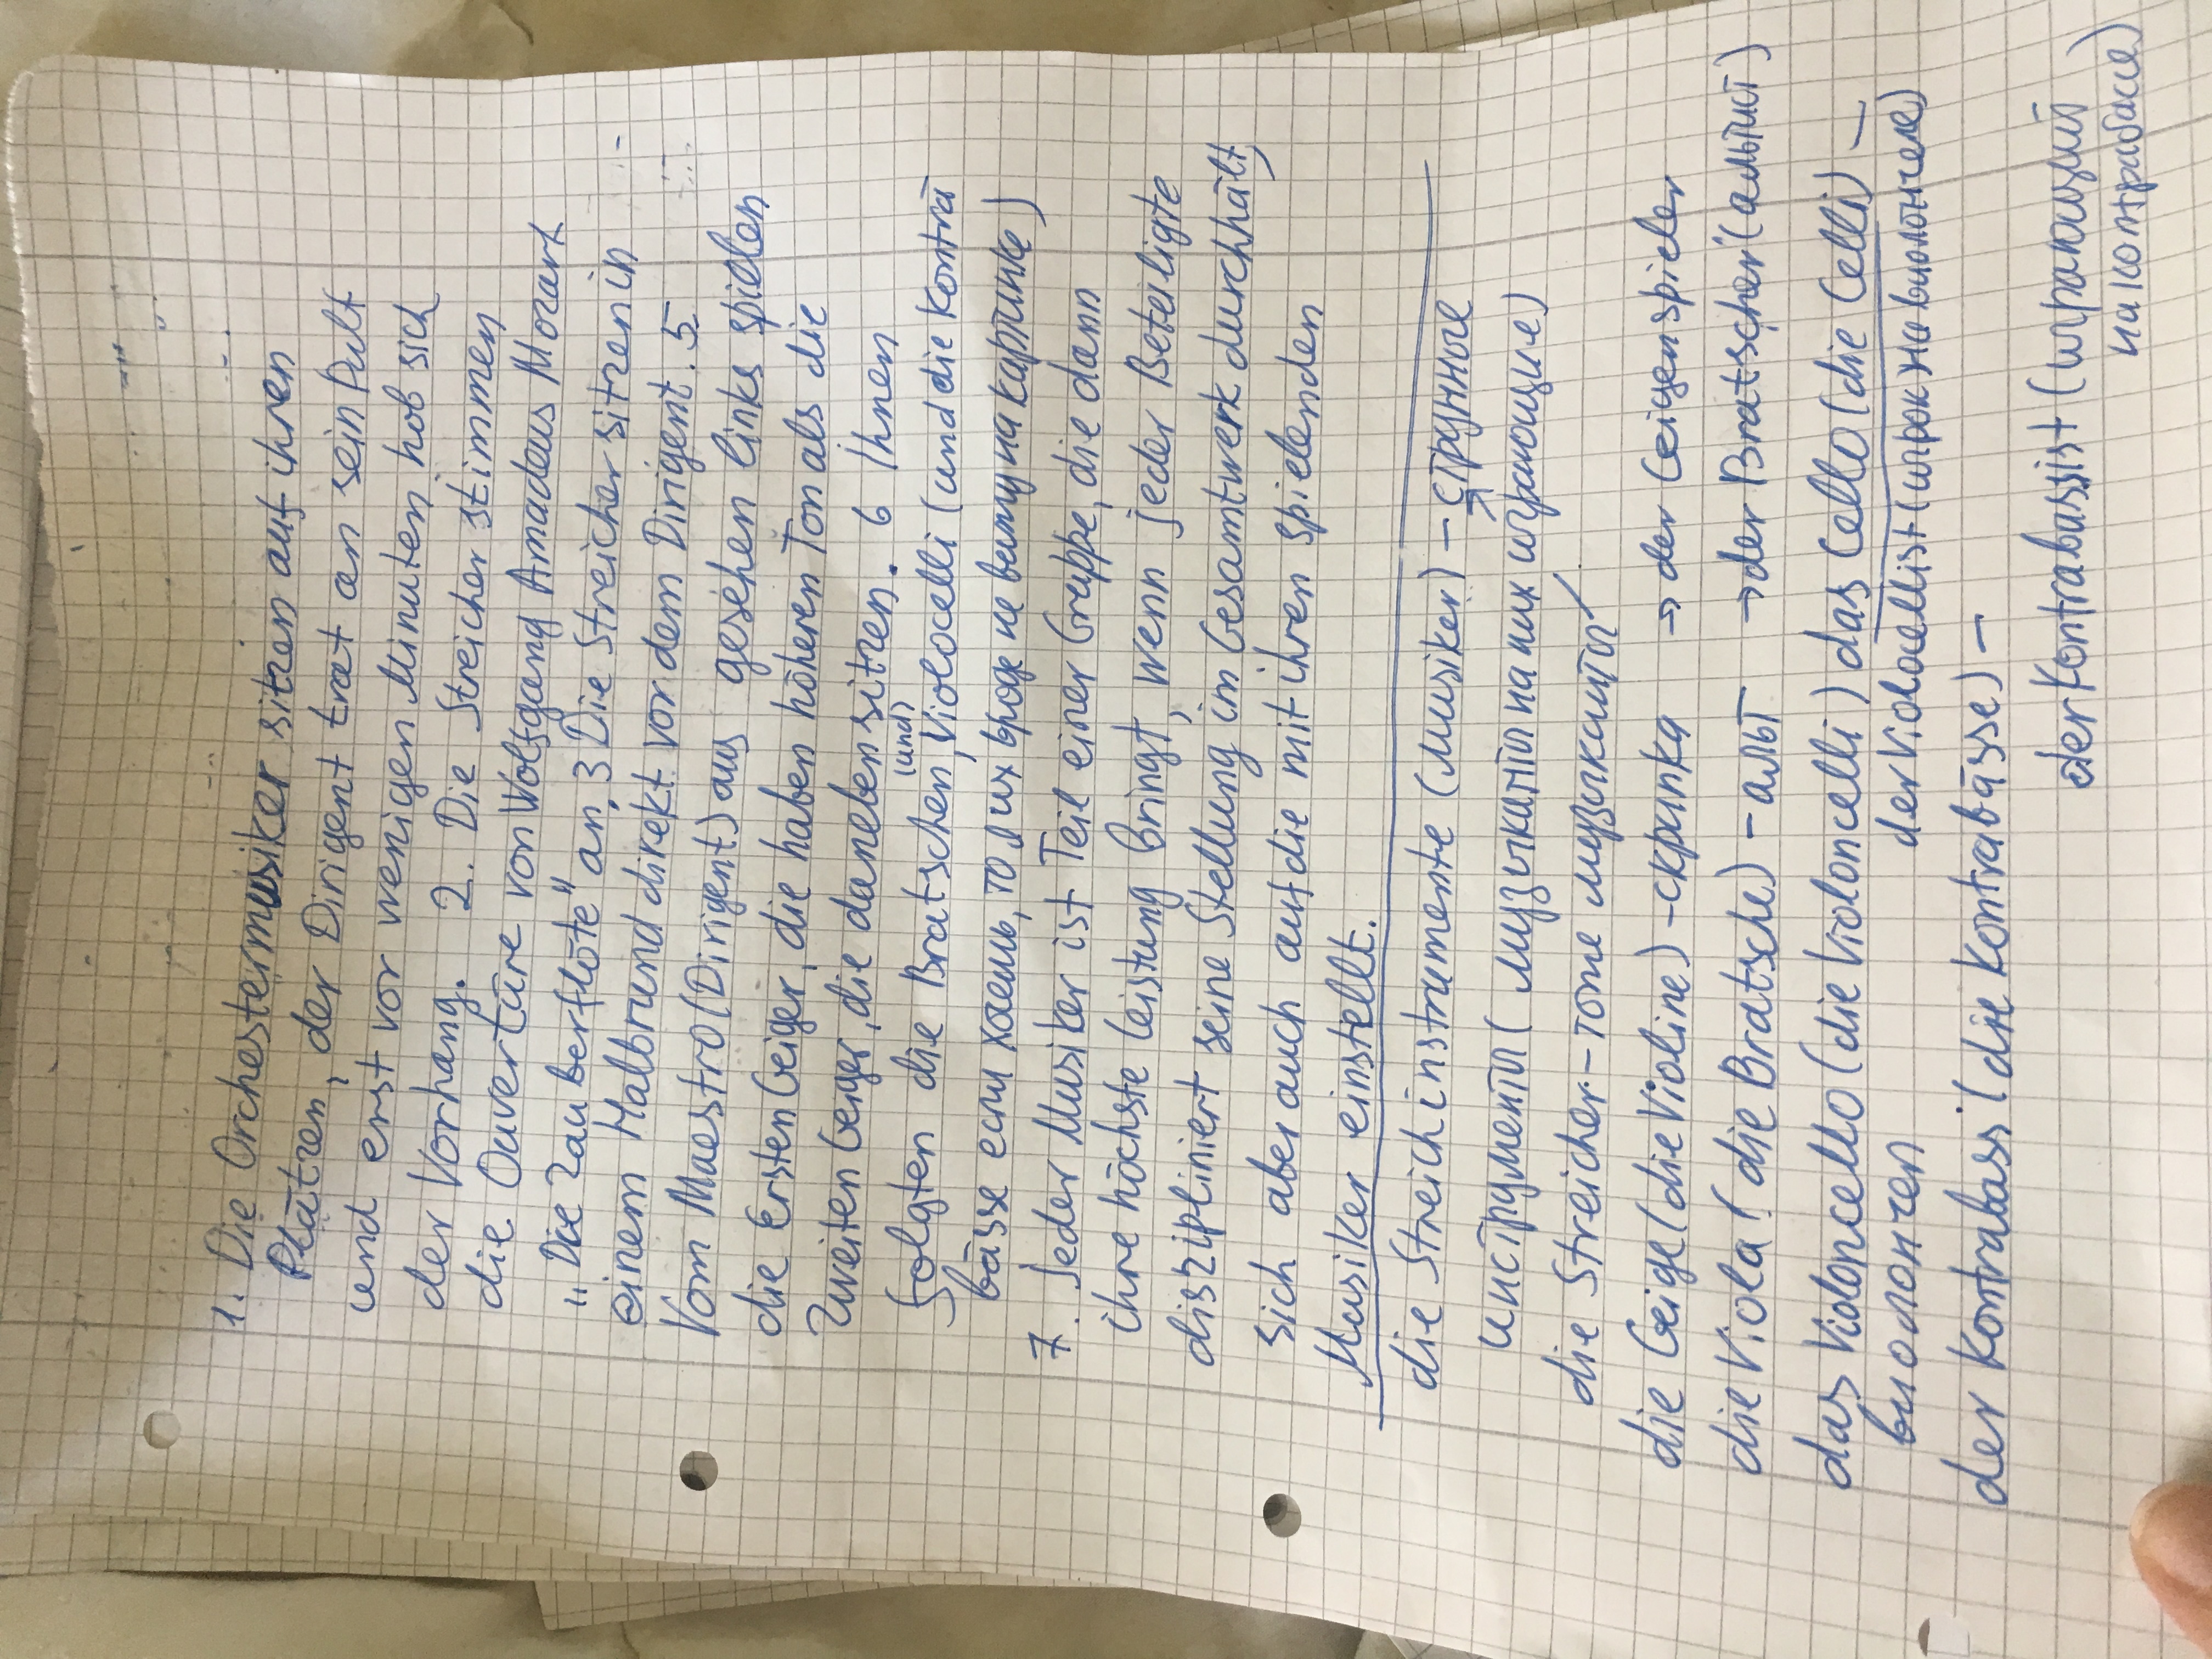 1. Die Orchestermusiker sitzen auf ihren
Plätzen, der Dirigent trat an sein Pult
und erst vor wenigen Minuten hob sich
der Vorhang. 2. Die Streicher stimmen
die Ouvertüre von Wolfgang Amadeus Mozart
„Die Zauberflöte" an. 3 Die Streicher sitzen in
einem Halbrund direkt vor dem Dirigent. 5
Vom Maestro (Dirigent) aus gesehen links spielen
die Ersten Geiger, die haben höheren Ton als die
Zweiten Geiger, die daneben sitzen. 6 Ihnen
(und)
folgten die Bratschen, Violocelli (und die Konträ
bässe если хочешь, то я их вроде не вижу на картинке)
7. Jeder Musiker ist Teil einer Gruppe, die dann
ihre höchste Leistung bringt, wenn jeder Beteiligte
diszipliniert seine Stellung im Gesamtwerk durchhält,
sich aber auch auf die mit ihren spielenden
Musiker einstellt.
die Streichinstrumente (Musiker) – струнные
инструменты (музыканты на них играющие)
die Streicher – тоже музыканты
die Geige (die Violine) – скрипка → der Geigenspieler
die Viola (die Bratsche) – альт → der Bratscher (альтист)
das Violoncello (die Violoncelli) das Cello (die Celli) –
виолончел der Violoncellist (игрок на виолончеле)
der Kontrabass (die Kontrabässe) –
der Kontrabassist (играющий
на контрабасе)